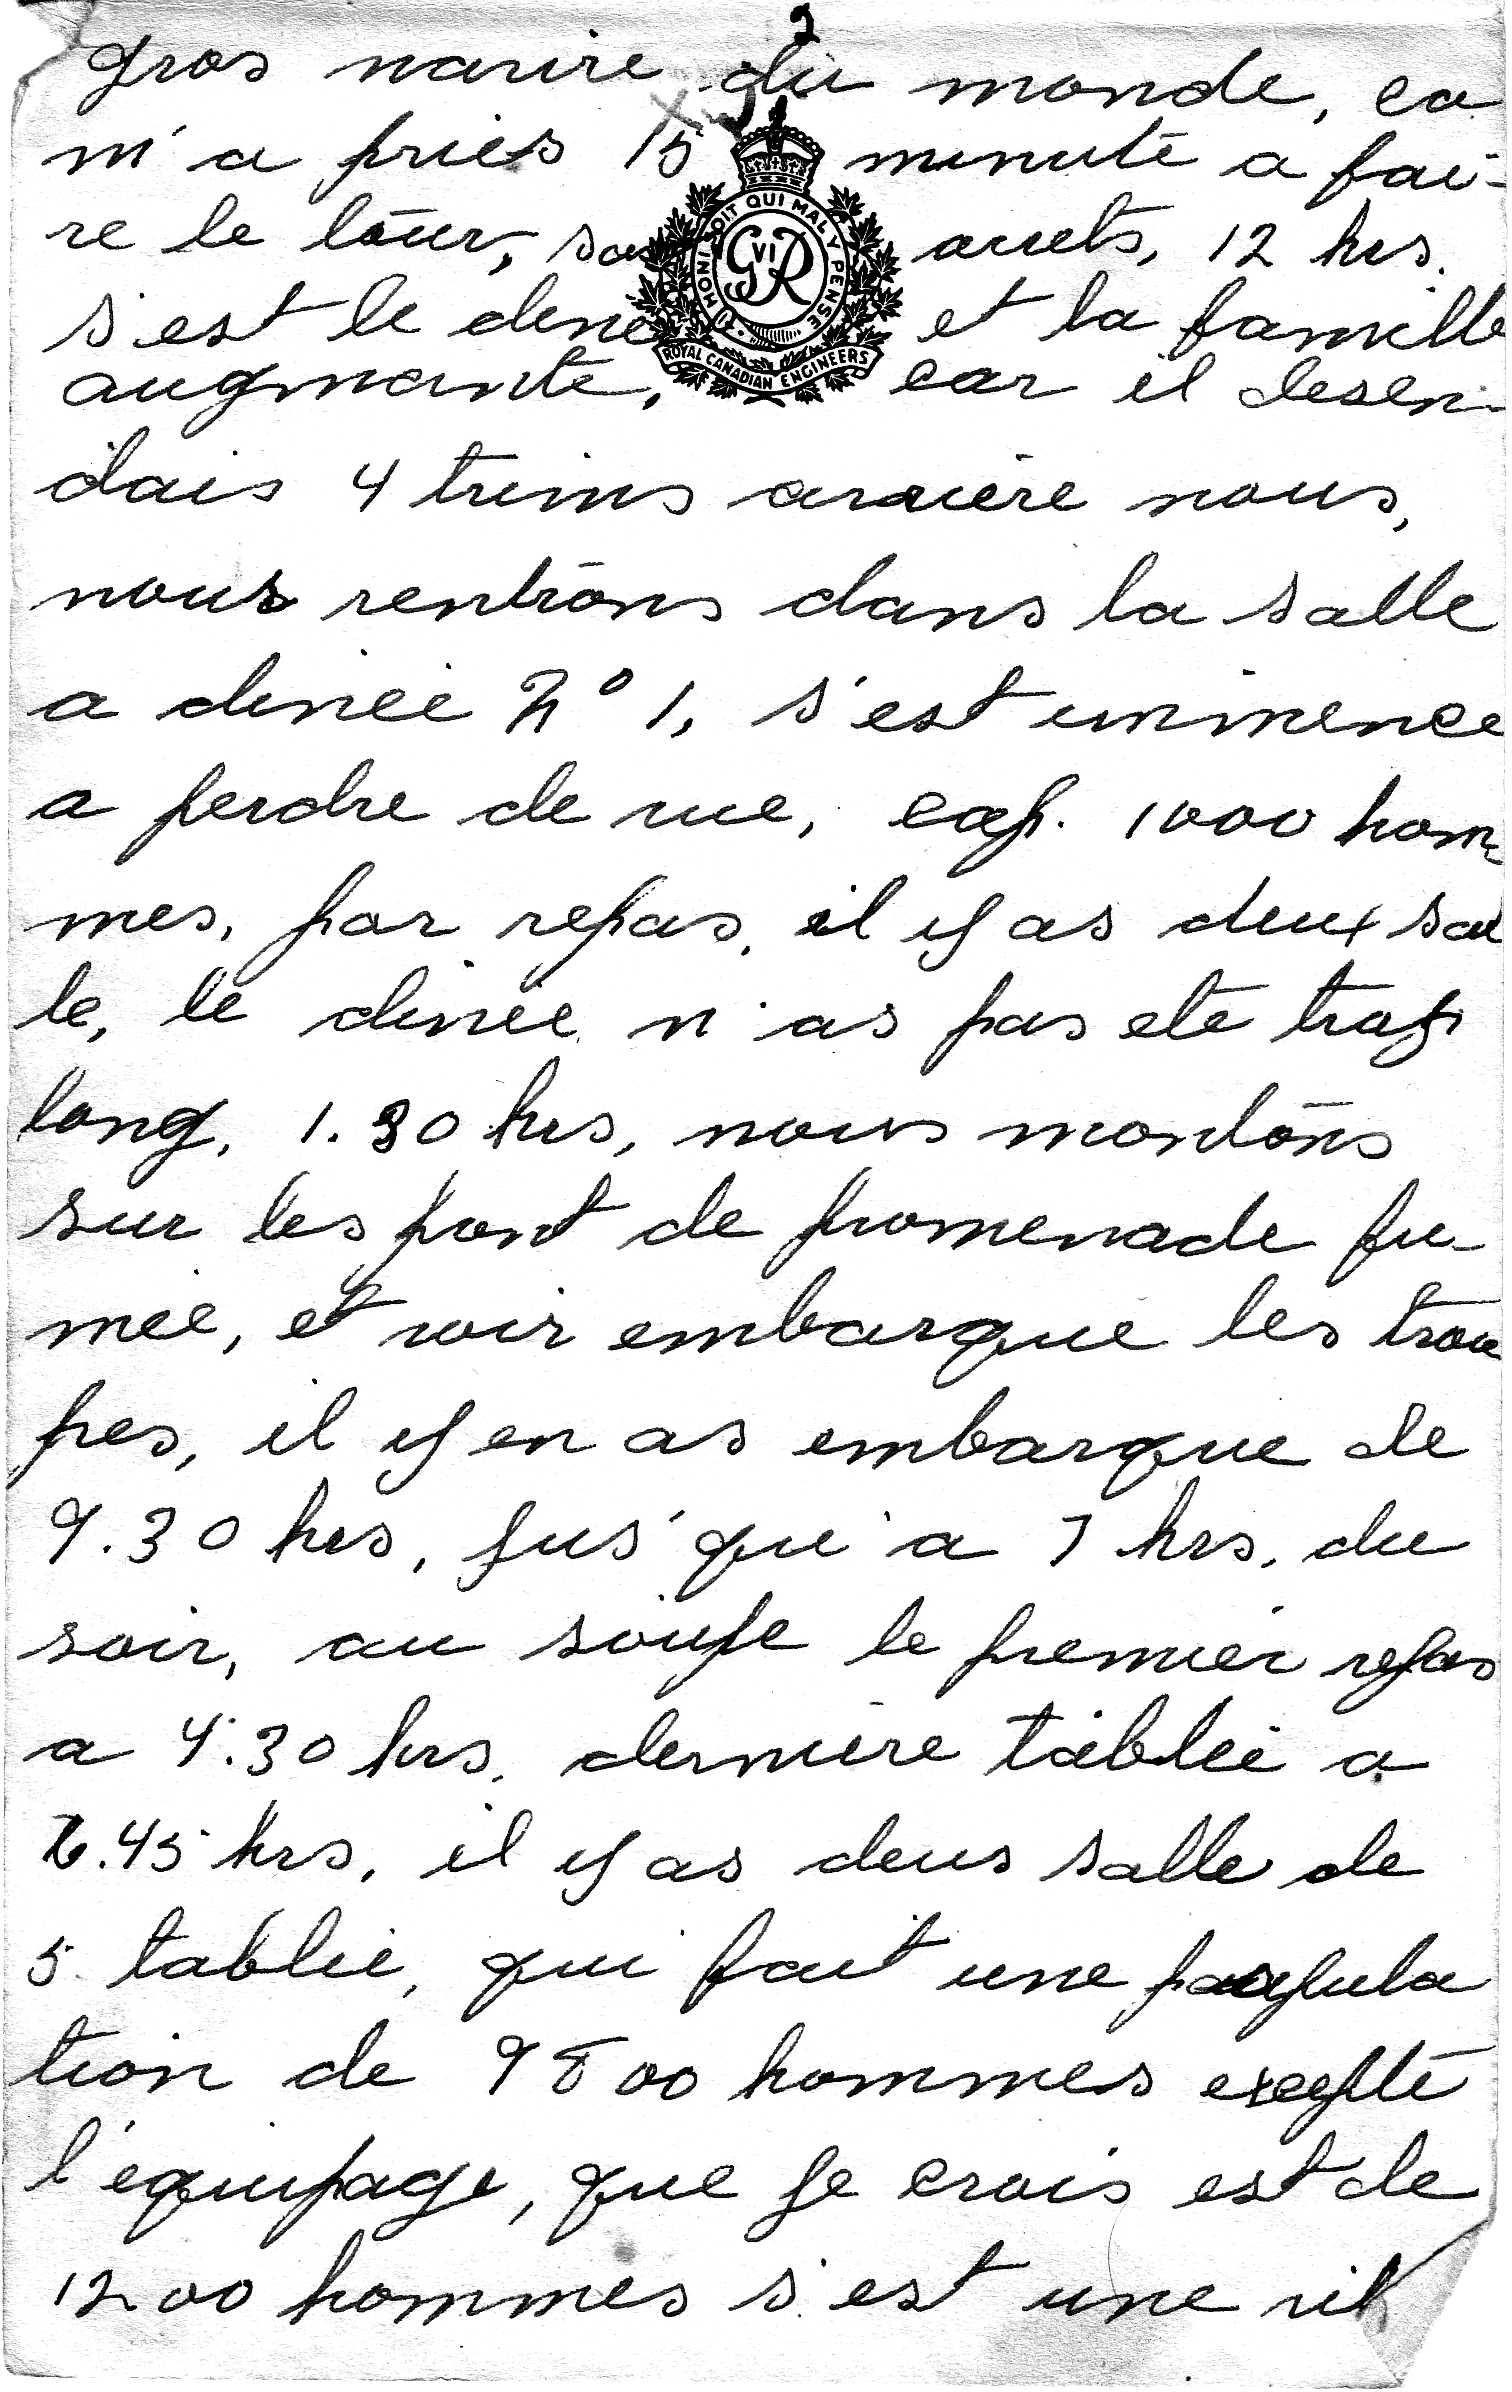 2
gros navire du monde, ca
m'a pries 15 minute a fai-
re le tour, sans arrets, 12 hrs.
s'est le dine et la famille
augmante, car il desen-
dais 4 trins arriere nous,
nous rentrons dans la salle
a dinée No 1, s'est imimence
a perdre de vue, cap. 1000 hom-
mes, par repas, il y as deux sal
le, le dinée n'as pas ete trop
long, 1.30 hrs, nous montons
sur les pont de promenade fu-
mée, et voir embarque les trou
pes, il y en as embarque de
9.30 hrs, jus'que'a 7 hrs. du
soir, au soupe le premier repas
a 4.30 hrs. derniere tablée a
6.45 hrs, il y as deus salle de
5 tablée, qui fait une popula
tion de 9800 hommes excepté
l'equipage, que je crois est de
1200 hommes s'est une vil
HONI SOIT QUI MAL Y PENSE
GVIR
ROYAL CANADIAN ENGINEERS